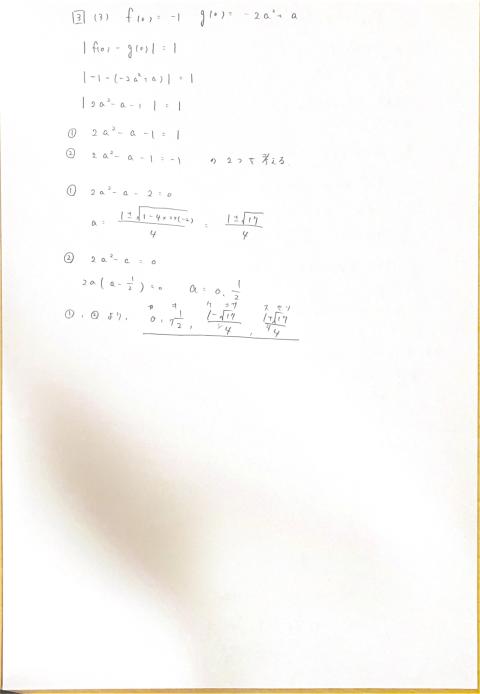 3 (3) f(0) = -1 g(0) = -2a²+a
|f(0) - g(0)| = 1
|-1-(-2a²+a)| = 1
|2a²-a-1| = 1
① 2a²-a-1=1
② 2a²-a-1=-1 の2つを考える
① 2a²-a-2=0
a = (1±√(1-4×2×(-2)))/4 = (1±√17)/4
② 2a²-a=0
2a(a-1/2)=0 a=0, 1/2
①,②より, 0, 1/2, (1-√17)/4, (1+√17)/4